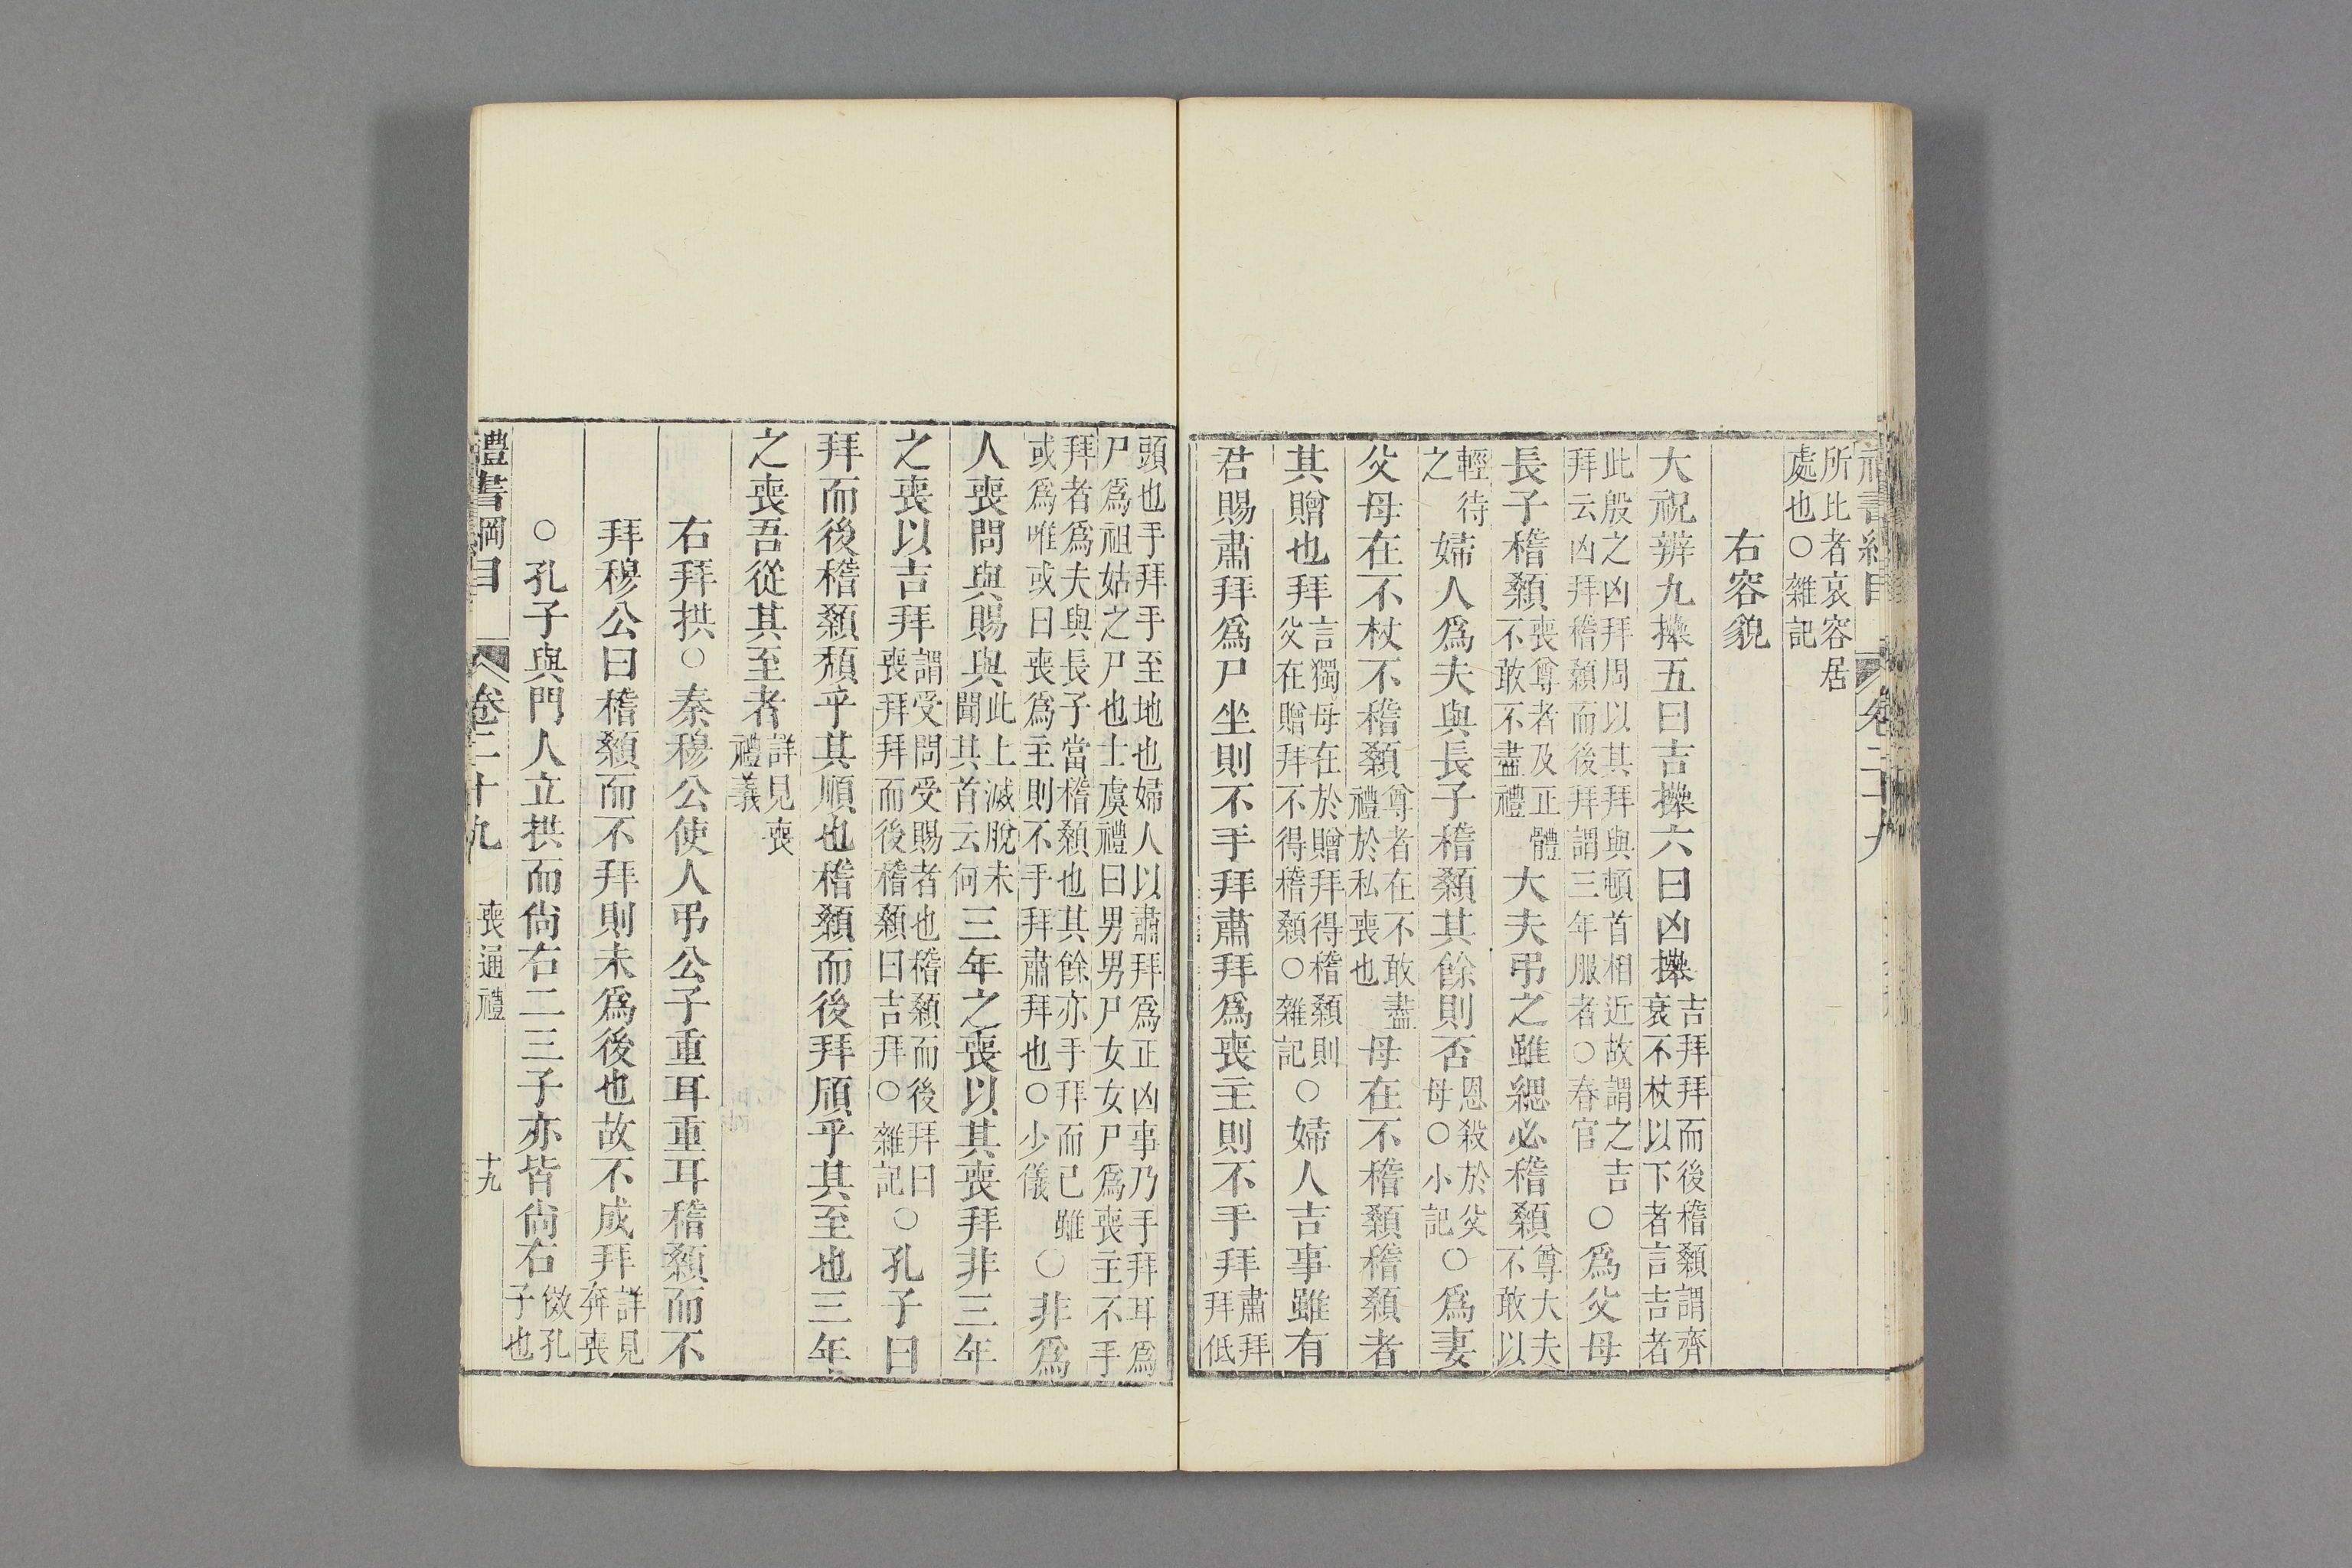 所比者哀容居
處也○雜記
右容貌
大祝辨九𢷎五曰吉𢷎六曰凶𢷎吉拜拜而後稽顙謂齊
衰不杖以下者言吉者
此殷之凶拜周以其拜與頓首相近故謂之吉
拜云凶拜稽顙而後拜謂三年服者○春官○爲父母
長子稽顙喪尊者及正體
不敢不盡禮大夫弔之雖緦必稽顙尊大夫
不敢以
輕待
之婦人爲夫與長子稽顙其餘則否恩殺於父
母○小記○爲妻
父母在不杖不稽顙尊者在不敢盡
禮於私喪也母在不稽顙稽顙者
其贈也拜言獨母在於贈拜得稽顙則
父在贈拜不得稽顙○雜記○婦人吉事雖有
君賜肅拜爲尸坐則不手拜肅拜爲喪主則不手拜肅拜
拜低
頭也手拜手至地也婦人以肅拜爲正凶事乃手拜耳爲
尸爲祖姑之尸也士虞禮曰男男尸女女尸爲喪主不手
拜者爲夫與長子當稽顙也其餘亦手拜而已雖
或爲唯或曰喪爲主則不手拜肅拜也○少儀○非爲
人喪問與賜與此上滅脫未
聞其首云何三年之喪以其喪拜非三年
之喪以吉拜謂受問受賜者也稽顙而後拜曰
喪拜拜而後稽顙曰吉拜○雜記○孔子曰
拜而後稽顙頹乎其順也稽顙而後拜頎乎其至也三年
之喪吾從其至者詳見喪
禮義
右拜拱○秦穆公使人弔公子重耳重耳稽顙而不
拜穆公曰稽顙而不拜則未爲後也故不成拜詳見
奔喪
○孔子與門人立拱而尙右二三子亦皆尙右俲孔
子也
禮書綱目 卷二十九 喪通禮 十九